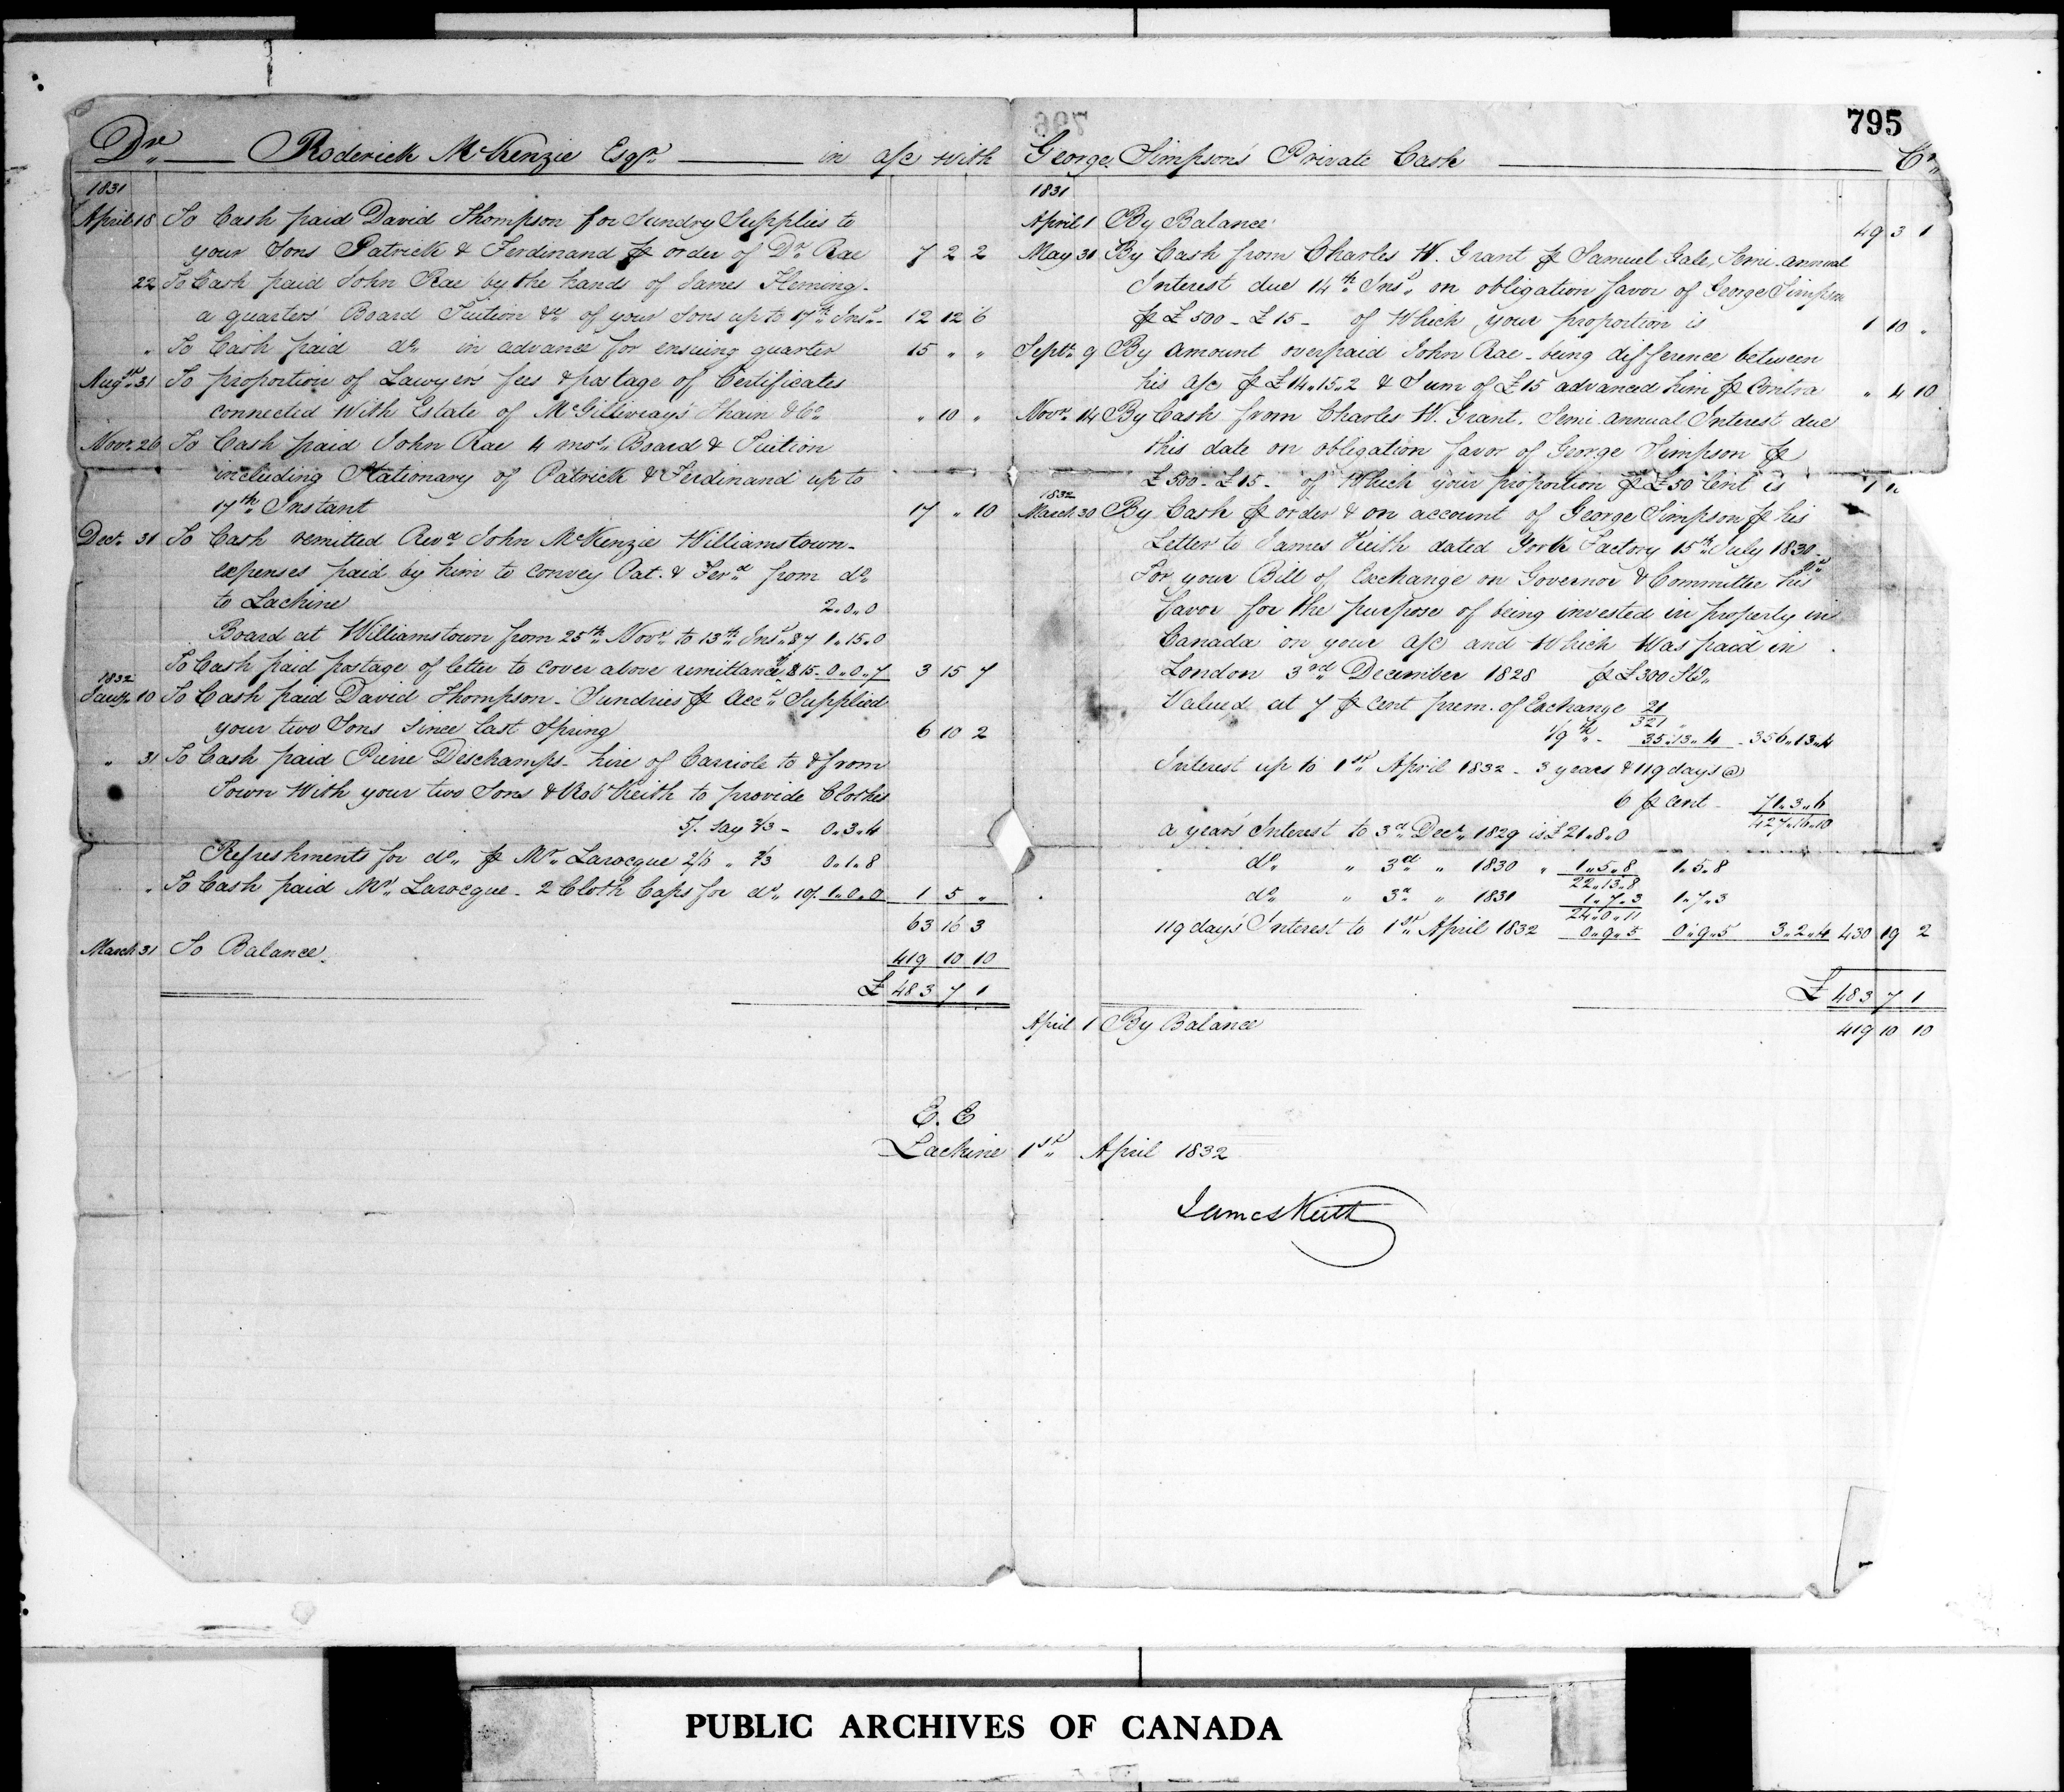 795
Dr. Roderick McKenzie Esqre. in a/c with
1831
April 18 To Cash paid David Thompson for Sundry Supplies to
your Sons Patrick & Ferdinand ⅌ order of Dr. Rae 7 2 2
22 To Cash paid John Rae by the hands of James Fleming
a quarters' Board Tuition &c. of your Sons up to 17th. Inst. 12 12 6
" To Cash paid do. in advance for ensuing quarter 15 " "
Augst. 31 To proportion of Lawyer's fees & postage of Certificates
connected With Estate of McGillivray's Thain & Co. " 10 "
Novr. 26 To Cash paid John Rae 4 mos. Board & Tuition
including Stationary of Patrick & Ferdinand up to
17th. Instant 17 " 10
Decr. 31 To Cash remitted Revd. John McKenzie Williamstown
expenses paid by him to convey Pat. & Ferd. from do.
to Lachine 2..0..0
Board at Williamstown from 25th. Novr. to 13th. Inst. 87 1..15..0
To Cash paid postage of letter to cover above remittance, 815 0..0..7 3 15 7
1832
Jany. 10 To Cash paid David Thompson - Sundries ⅌ Acct. Supplied
your two Sons since last Spring 6 10 2
" 31 To Cash paid Pierre Deschamps - hire of Carriole to & from
Town With your two Sons & Robt Keith to provide Clothes
5/. say 2/3 - 0..3..4
Refreshments for do. ⅌ Mr. Larocque 2/6 " 2/3 0..1..8
" To Cash paid Mr. Larocque - 2 Cloth Caps for do. 10/. 1..0..0 1 5 "
63 16 3
March 31 To Balance. 419 10 10
£ 483 7 1
George Simpson's Private Cash Cr.
1831
April 1 By Balance 49 3 1
May 31 By Cash from Charles W. Grant ⅌ Samuel Gale, Semi-annual
Interest due 14th. Inst. on obligation favor of George Simpson
⅌ £500 - £15 - of Which your proportion is 1 10 "
Septr. 9 By amount overpaid John Rae - being difference between
his a/c ⅌ £14..15..2 & Sum of £15 advanced him ⅌ Contra " 4 10
Novr. 14 By Cash from Charles W. Grant. Semi annual Interest due
this date on obligation favor of George Simpson ⅌
£500 - £15 - of Which your proportion ⅌ £50 Cent is 1
1832
March 30 By Cash ⅌ order & on account of George Simpson ⅌ his
Letter to James Keith dated York Factory 15th. July 1830
For your Bill of Exchange on Governor & Committee his
favor for the purpose of being invested in property in
Canada on your a/c and Which Was paid in
London 3rd. December 1828 ⅌ £300 Stg.
Valued at 7 ⅌ Cent prem. of Exchange 21
321
1/9th. - 35..13..4 - 356..13..4
Interest up to 1st. April 1832 - 3 years & 119 days @
6 ⅌ cent - 71..3..6
427..16..10
a years Interest to 3d. Decr. 1829 is £21..8..0
do. " 3d. " 1830 " 1..5..8 1..5..8
22..13..8
do. " 3d. " 1831 1..7..3 1..7..3
24..0..11
119 days' Interest to 1st. April 1832 0..9..5 0..9..5 3..2..4 430 19 2
£ 483 7 1
April 1 By Balance 419 10 10
E. E
Lachine 1st. April 1832
James Keith
PUBLIC ARCHIVES OF CANADA